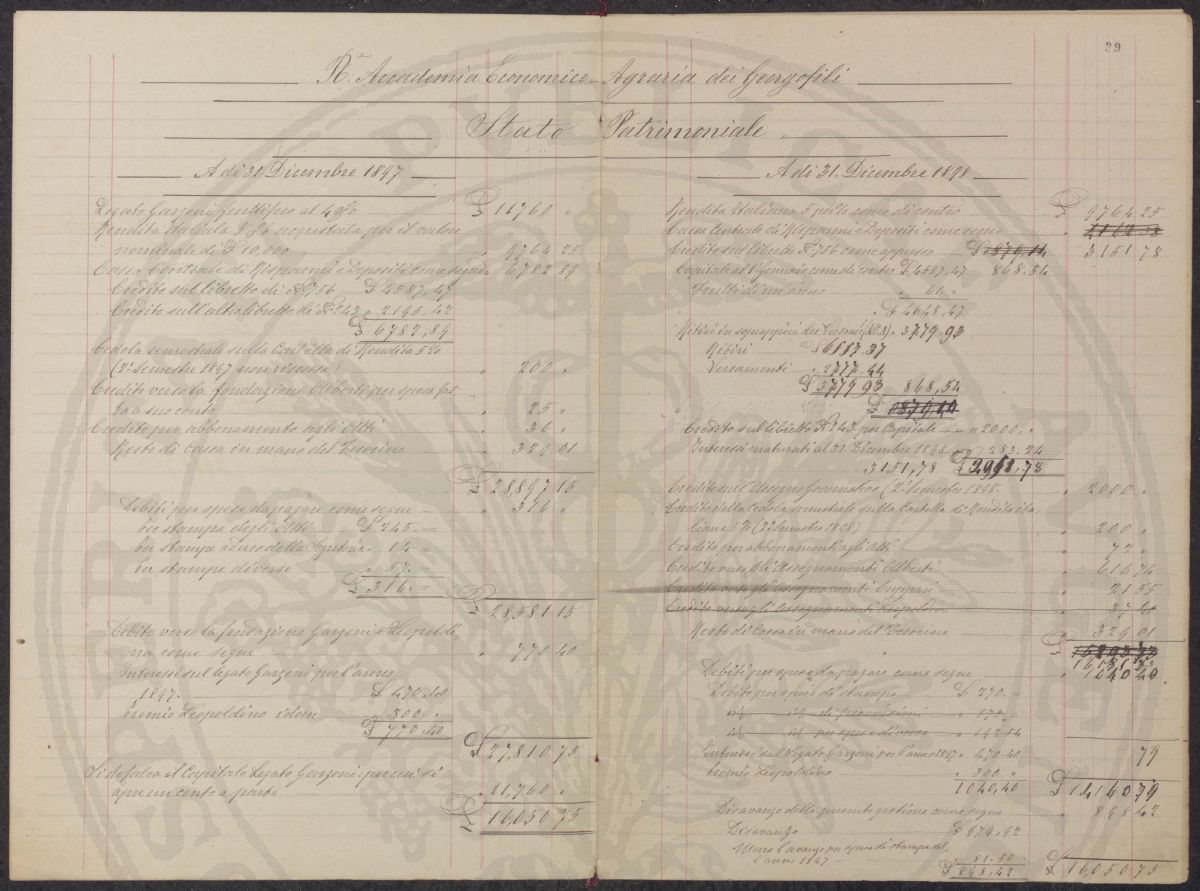 29
Rᵉ Accademia Economico-Agraria dei Georgofili
Stato Patrimoniale
A dì 31. Dicembre 1897
Legato Garzoni fruttifero al 4% £ 11760 "
Rendita Italiana 5% acquistata per il valore
nominale di £ 10,000 " 9764 25
Cassa Centrale di Risparmi e Depositi come segue " 6782 89
Credito sul libretto di N° 756 £ 4587,47
Credito sull'altro libretto di N° 243 " 2195.42
£ 6782,89
Cedola semestrale sulla Cartella di Rendita 5%
(2° semestre 1897 non riscossa) " 200 "
Credito verso la fondazione Alberti per spesa fat-
ta a suo conto " 25 "
Credito per abbonamento agli Atti " 36 "
Resto di Cassa in mano del Tesoriere " 329 01
£ 28897 15
Debiti per spese da pagare come segue " 316 "
per stampa degli Atti £ 245. =
per stampe ad uso della Segreteria " 14 =
per stampe diverse " 57. =
£ 316. =
£ 28581 15
Debito verso la fondazione Garzoni e Leopoldi-
na come segue " 770 40
Interessi sul legato Garzoni per l'anno
1897. £ 470.40
Premio Leopoldino idem " 300 "
£ 770.40
£ 27,810 75
Si defalca il Capitale Legato Garzoni per cui si
apre un conto a parte " 11,760 "
£ 16,050 75
A dì 31. Dicembre 1898
Rendita Italiana 5 per % come di contro £ 9764.25
Cassa Centrale di Risparmi e Depositi come segue
Credito sul libretto N° 756 come appresso 3151 78
Capitale al 1 Gennaio come di contro £ 4587.47 868.54
Frutti di un anno " 61. "
£ 4648.47
3779.93
Ritiri £ 6557.37
Versamenti " 2777.44
£ 3779 93 868,54
Credito sul libretto N° 243. per Capitale " 2000. "
Interessi maturati al 31 Dicembre 1898 " 283.24
3151,78
Credito sull'Assegno Governativo (2° Semestre 1898. " 2000 "
Credito della Cedola semestrale sulla Cartella di Rendita ita-
liana 5% (2° Semestre 1898) " 200 "
Credito per abbonamenti agli Atti " 72 "
Credito verso gli Assegnamenti Alberti " 616 74
Credito verso gli Assegnamenti Cuppari " 21 55
Credito verso gli Assegnamenti Leopoldini
Resto di Cassa in mano del Tesoriere " 329 01
Debiti per spese da pagare come segue " 1040 40
Debito per spese di stampa £ 270. =
id id di provvisioni " 170. =
id id per spese diverse
Interessi sul Legato Garzoni per l'anno 1897 " 470.40
Premio Leopoldino " 300 "
1040,40
79
£
Disavanzo della presente gestione come segue 898 42
Disavanzo £ 979,92
Meno l'avanzo per spese di stampa del-
l'anno 1897 " 81.50
£ 898.42
£ 16,050 75